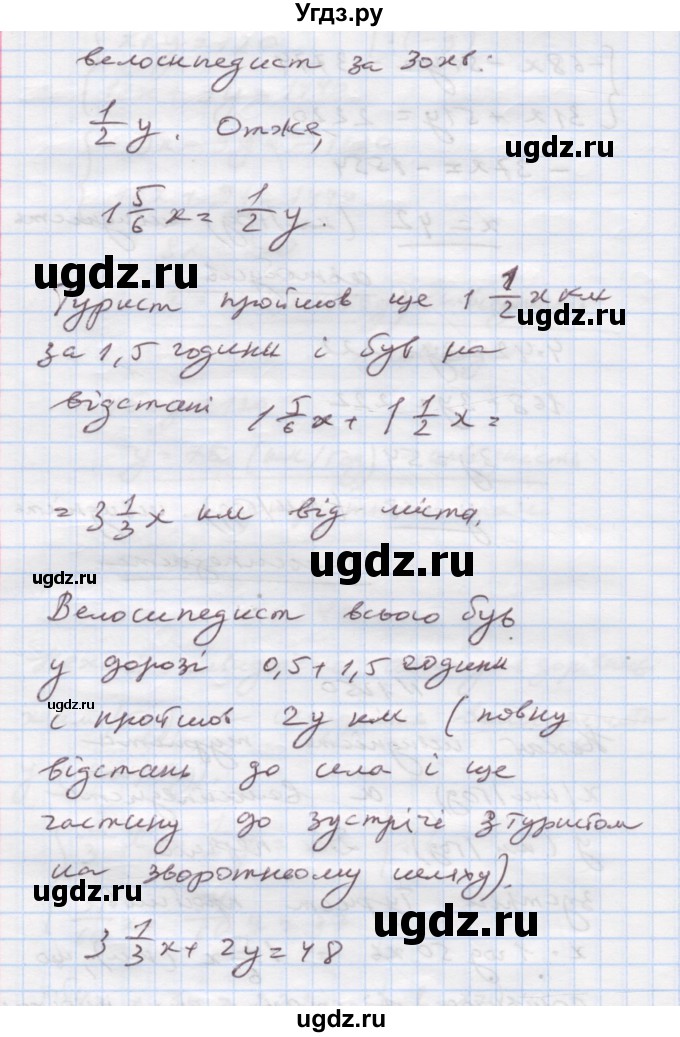 Угдз.ру
велосипедист за 30хв:
1/2 y. Отже,
1 5/6 x = 1/2 y.
ugdz.ru
ugdz.ru
Турист пройшов ще 1 1/2 x км
ugdz.ru
за 1,5 години і був на
відстані 1 5/6 x + 1 1/2 x =
ugdz.ru
= 3 1/3 x км від міста.
ugdz.ru
ugdz.ru
Велосипедист всього був
у дорозі 0,5 + 1,5 години
ugdz.ru
і пройшов 2y км (повну
ugdz.ru
відстань до села і ще
частину до зустрічі з туристом
ugdz.ru
на зворотньому шляху).
ugdz.ru
3 1/3 x + 2y = 48
ugdz.ru
ugdz.ru